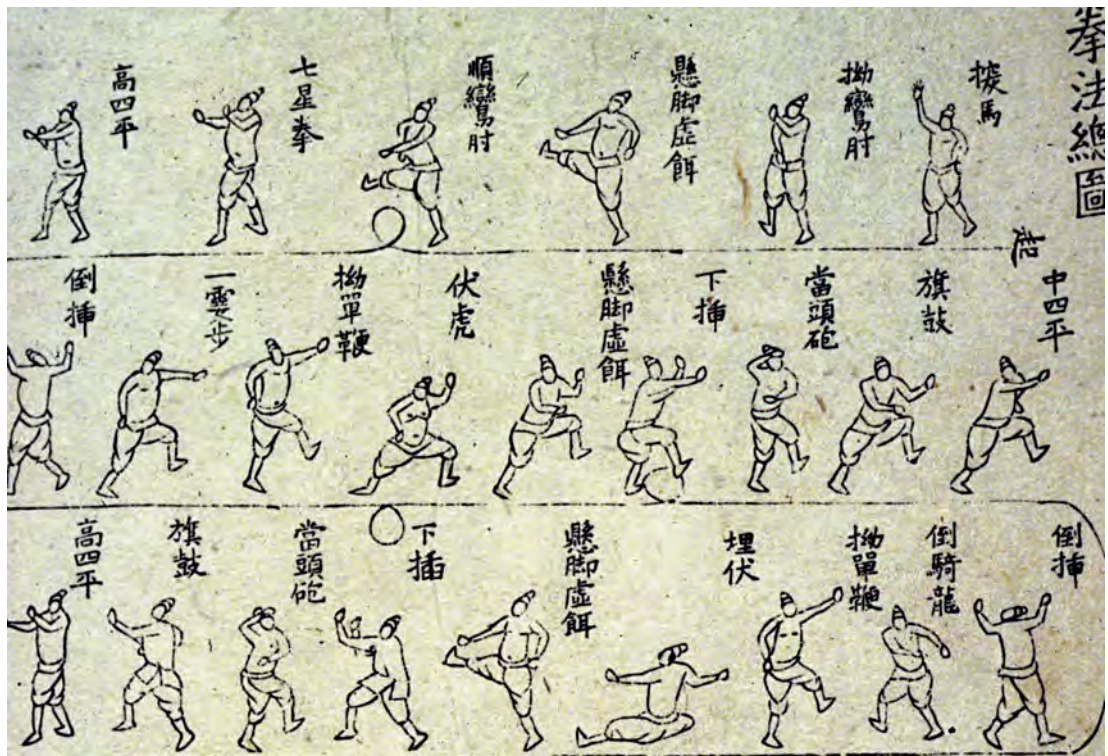 拳法總圖
起
探馬
拗鸞肘
懸脚虛餌
順鸞肘
七星拳
高四平
中四平
旗鼓
當頭砲
下揷
懸脚虛餌
伏虎
拗單鞭
一霎步
倒揷
倒揷
倒騎龍
拗單鞭
埋伏
懸脚虛餌
下插
當頭砲
旗鼓
高四平